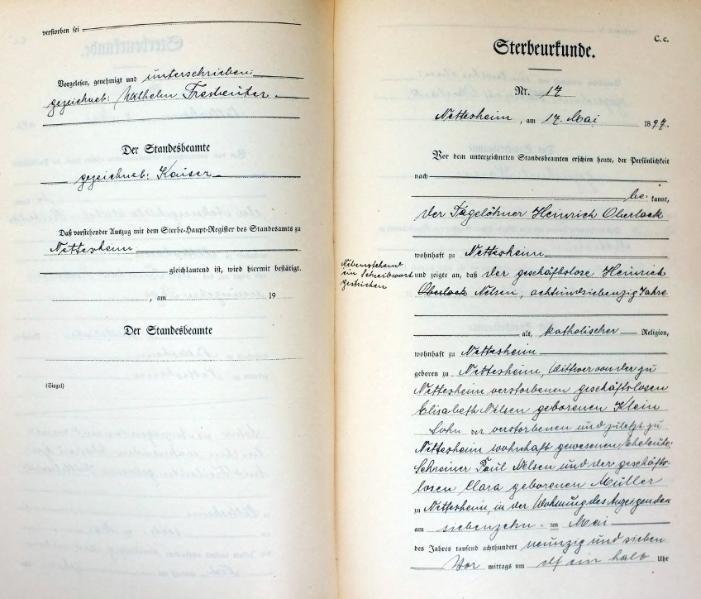 verstorben sei
Vorgelesen, genehmigt und unterschrieben
gezeichnet: Wilhelm
Der Standesbeamte
gezeichnet: Kaiser
Daß vorstehender Auszug mit dem Sterbe-Haupt-Register des Standesamts zu
Nettersheim
gleichlautend ist, wird hiermit bestätigt.
, am 19
Der Standesbeamte
(Siegel)
C. c.
Sterbeurkunde.
Nr. 17
Nettersheim, am 17. Mai 1897.
Vor dem unterzeichneten Standesbeamten erschien heute, der Persönlichkeit
nach
be kannt,
der Tagelöhner Heinrich Oberlack
wohnhaft zu Nettersheim
Nebenstehend
ein Schreibwort
gestrichen
und zeigte an, daß der geschäftslose Heinrich
Oberlack Nelsen, achtundsiebenzig Jahre
alt, katholischer Religion,
wohnhaft zu Nettersheim
geboren zu Nettersheim, Wittwer von der zu
Nettersheim verstorbenen geschäftslosen
Elisabeth Nelsen geborenen Klein
Sohn der verstorbenen und zuletzt zu
Nettersheim wohnhaft gewesenen Eheleute
Schreiner Paul Nelsen und der geschäfts-
losen Clara geborenen Müller
zu Nettersheim, in der Wohnung des Anzeigenden
am siebenzehn ten Mai
des Jahres tausend achthundert neunzig und sieben
Vor mittags um elf ein halb Uhr